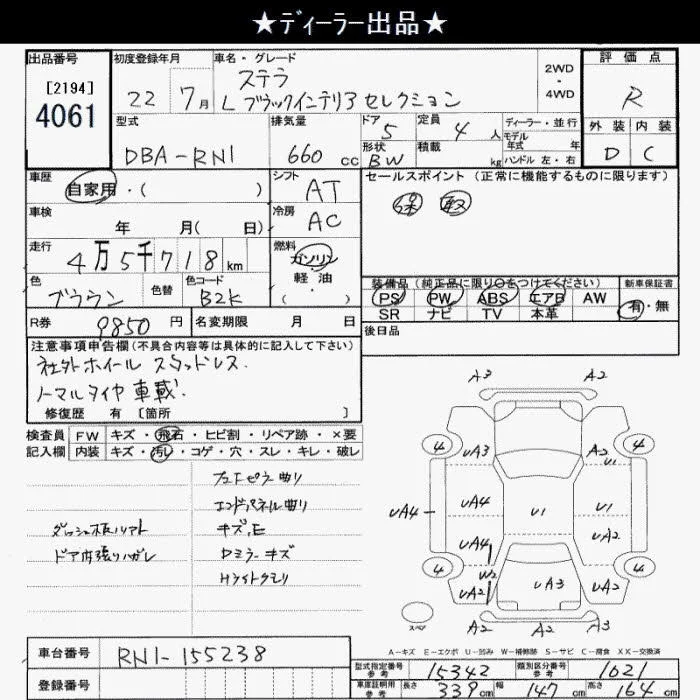 ★ディーラー出品★
出品番号
[2194]
4061
初度登録年月
22年 7月
車名・グレード
ステラ
L ブラックインテリア セレクション
2WD
・
4WD
評価点
R
外装 内装
D C
型式
DBA-RN1
排気量
660 cc
ドア 5
形状 BW
定員 4 人
積載 kg
ディーラー・並行
モデル年式 年
ハンドル 左・右
車歴
自家用・( )
シフト
AT
セールスポイント (正常に機能するものに限ります)
保 取
車検
年 月( 日)
冷房
AC
走行
4万5千718km
燃料
ガソリン
軽油
( )
色
ブラウン
色替
色コード
B2K
装備品 (純正品に限り○をつけてください)
新車保証書
PS PW ABS エアB AW
有・無
SR ナビ TV 本革
R券 9850円
名変期限 月 日
後日品
注意事項申告欄 (不具合内容等は具体的に記入して下さい)
社外ホイール スタッドレス.
ノーマルタイヤ車載.
修復歴 有 [箇所 ]
検査員
記入欄
FW キズ・飛石・ヒビ割・リペア跡・×要
内装 キズ・汚レ・コゲ・穴・スレ・キレ・破レ
エンドパネル曲り
キズ、E
ドア内張りハガレ
Dミラーキズ
Hライトクモリ
A3 A2
4 4
uA3 A2 U1
uA4 uA4 U1 U1
uA4 uA2
4 W2 4
uA2 uA3 uA2
A2 A2 A3
スペア
A-キズ E-エクボ U-凹み W-補修跡 S-サビ C-腐食 XX-交換済
車台番号
RN1-155238
登録番号
型式指定番号 参考 15342
類別区分番号 参考 1021
車庫証明用 参考 長さ 339cm 幅 147cm 高さ 164cm